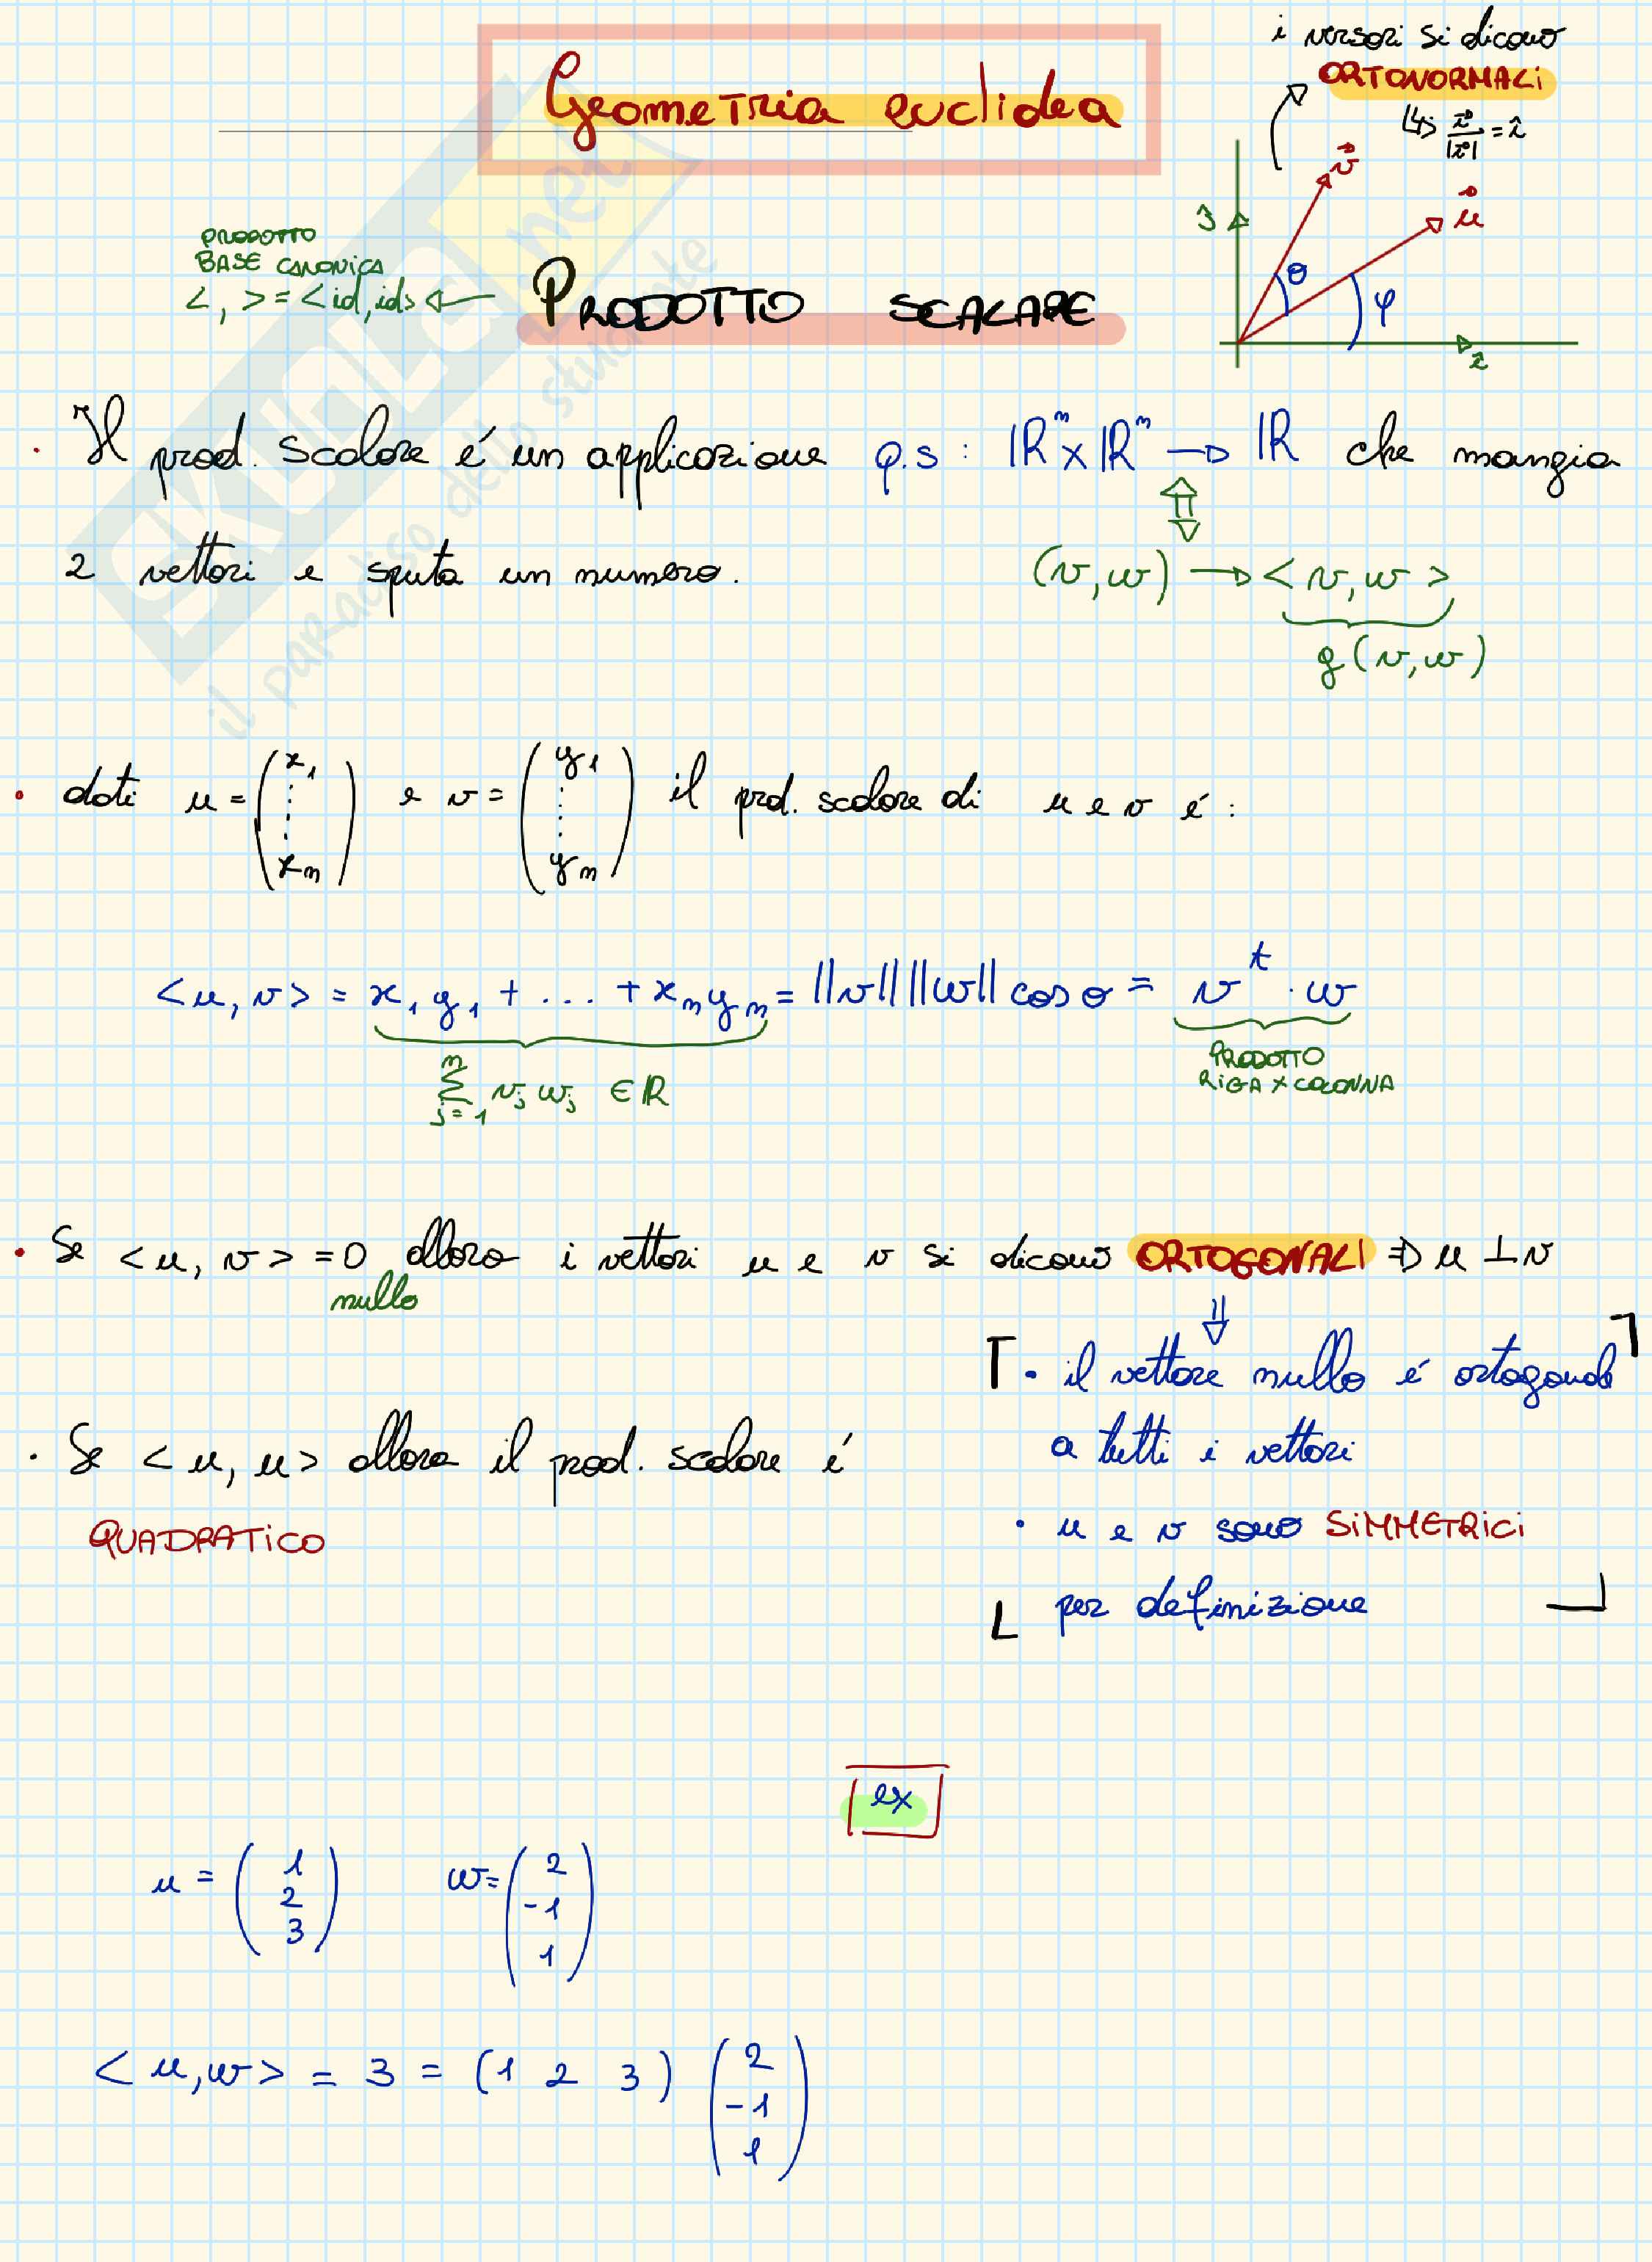 i versori si dicono
ORTONORMALI
↳ i⃗/|i⃗| = î
Geometria euclidea
v⃗
u⃗
ĵ
θ
φ
î
PRODOTTO
BASE CANONICA
< , > = <id, id> ←
PRODOTTO SCALARE
· Il prod. scalare é un applicazione p.s : ℝⁿ x ℝⁿ → ℝ che mangia
⇕
2 vettori e sputa un numero. (v, w) → < v, w >
g (v, w)
· dati u = (x₁ ⋮ xₙ) e v = (y₁ ⋮ yₙ) il prod. scalare di u e v é :
< u, v > = x₁ y₁ + ... + xₙ yₙ = ||v|| ||w|| cos θ = vᵗ · w
∑ⁿⱼ₌₁ vⱼ wⱼ ∈ ℝ
PRODOTTO
RIGA X COLONNA
· Se < u, v > = 0 allora i vettori u e v si dicono ORTOGONALI ⇒ u ⊥ v
nullo
⇓
· il vettore nullo é ortogonale
a tutti i vettori
· u e v sono SIMMETRICI
per definizione
· Se < u, u > allora il prod. scalare é
QUADRATICO
ex
u = (1 2 3) w = (2 -1 1)
< u, w > = 3 = (1 2 3) (2 -1 1)
SKUOLA.net
il paradiso dello studente